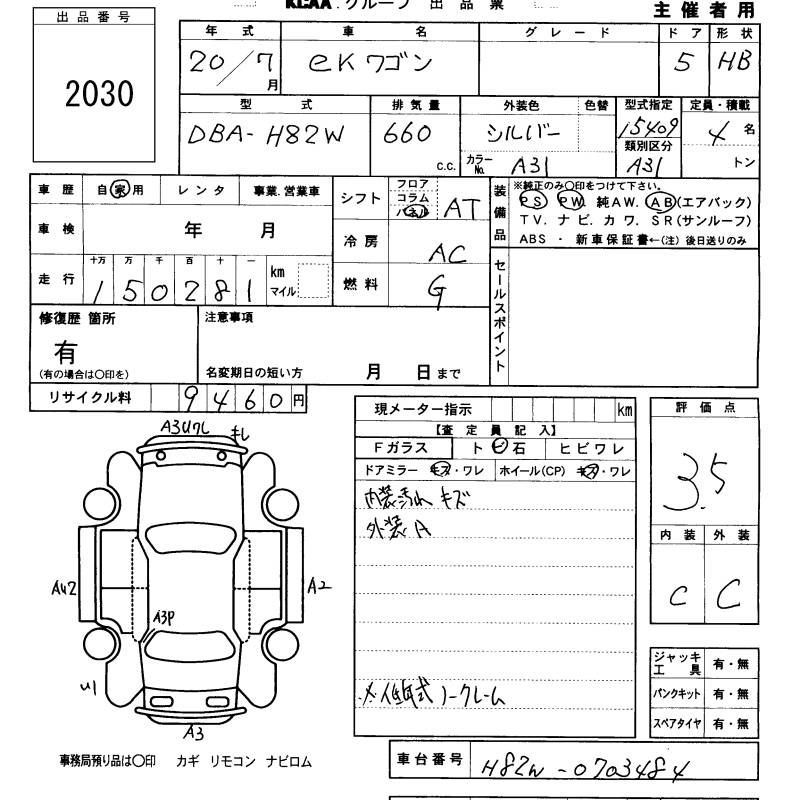 KCAA.グループ 出品票
主催者用
出品番号
2030
年式 車名 グレード ドア 形状
20/7月 eKワゴン 5 HB
型式 排気量 外装色 色替 型式指定 定員・積載
DBA-H82W 660 C.C. シルバー 15409 4名
カラーNo. A31 類別区分 A31 トン
車歴 自家用 レンタ 事業.営業車
車検 年 月
走行 十万 万 千 百 十 一 km マイル
150281
シフト フロア コラム パネル AT
冷房 AC
燃料 G
装備品
※純正のみ〇印をつけて下さい。
PS PW 純AW. AB(エアバック)
TV.ナビ.カワ.SR(サンルーフ)
ABS ・ 新車保証書←(注)後日送りのみ
セールスポイント
修復歴 箇所
有
(有の場合は〇印を)
注意事項
名変期日の短い方 月 日まで
リサイクル料 9460円
現メーター指示 km
【査定員記入】
Fガラス トビ石 ヒビワレ
ドアミラー キズ・ワレ ホイール(CP) キズ・ワレ
内装汚れ キズ
外装A
ノークレーム
評価点
3.5
内装 外装
C C
ジャッキ工具 有・無
パンクキット 有・無
スペアタイヤ 有・無
A3
AU2
A2
A3P
U1
A3
事務局預り品は〇印 カギ リモコン ナビロム
車台番号 H82W-0703484